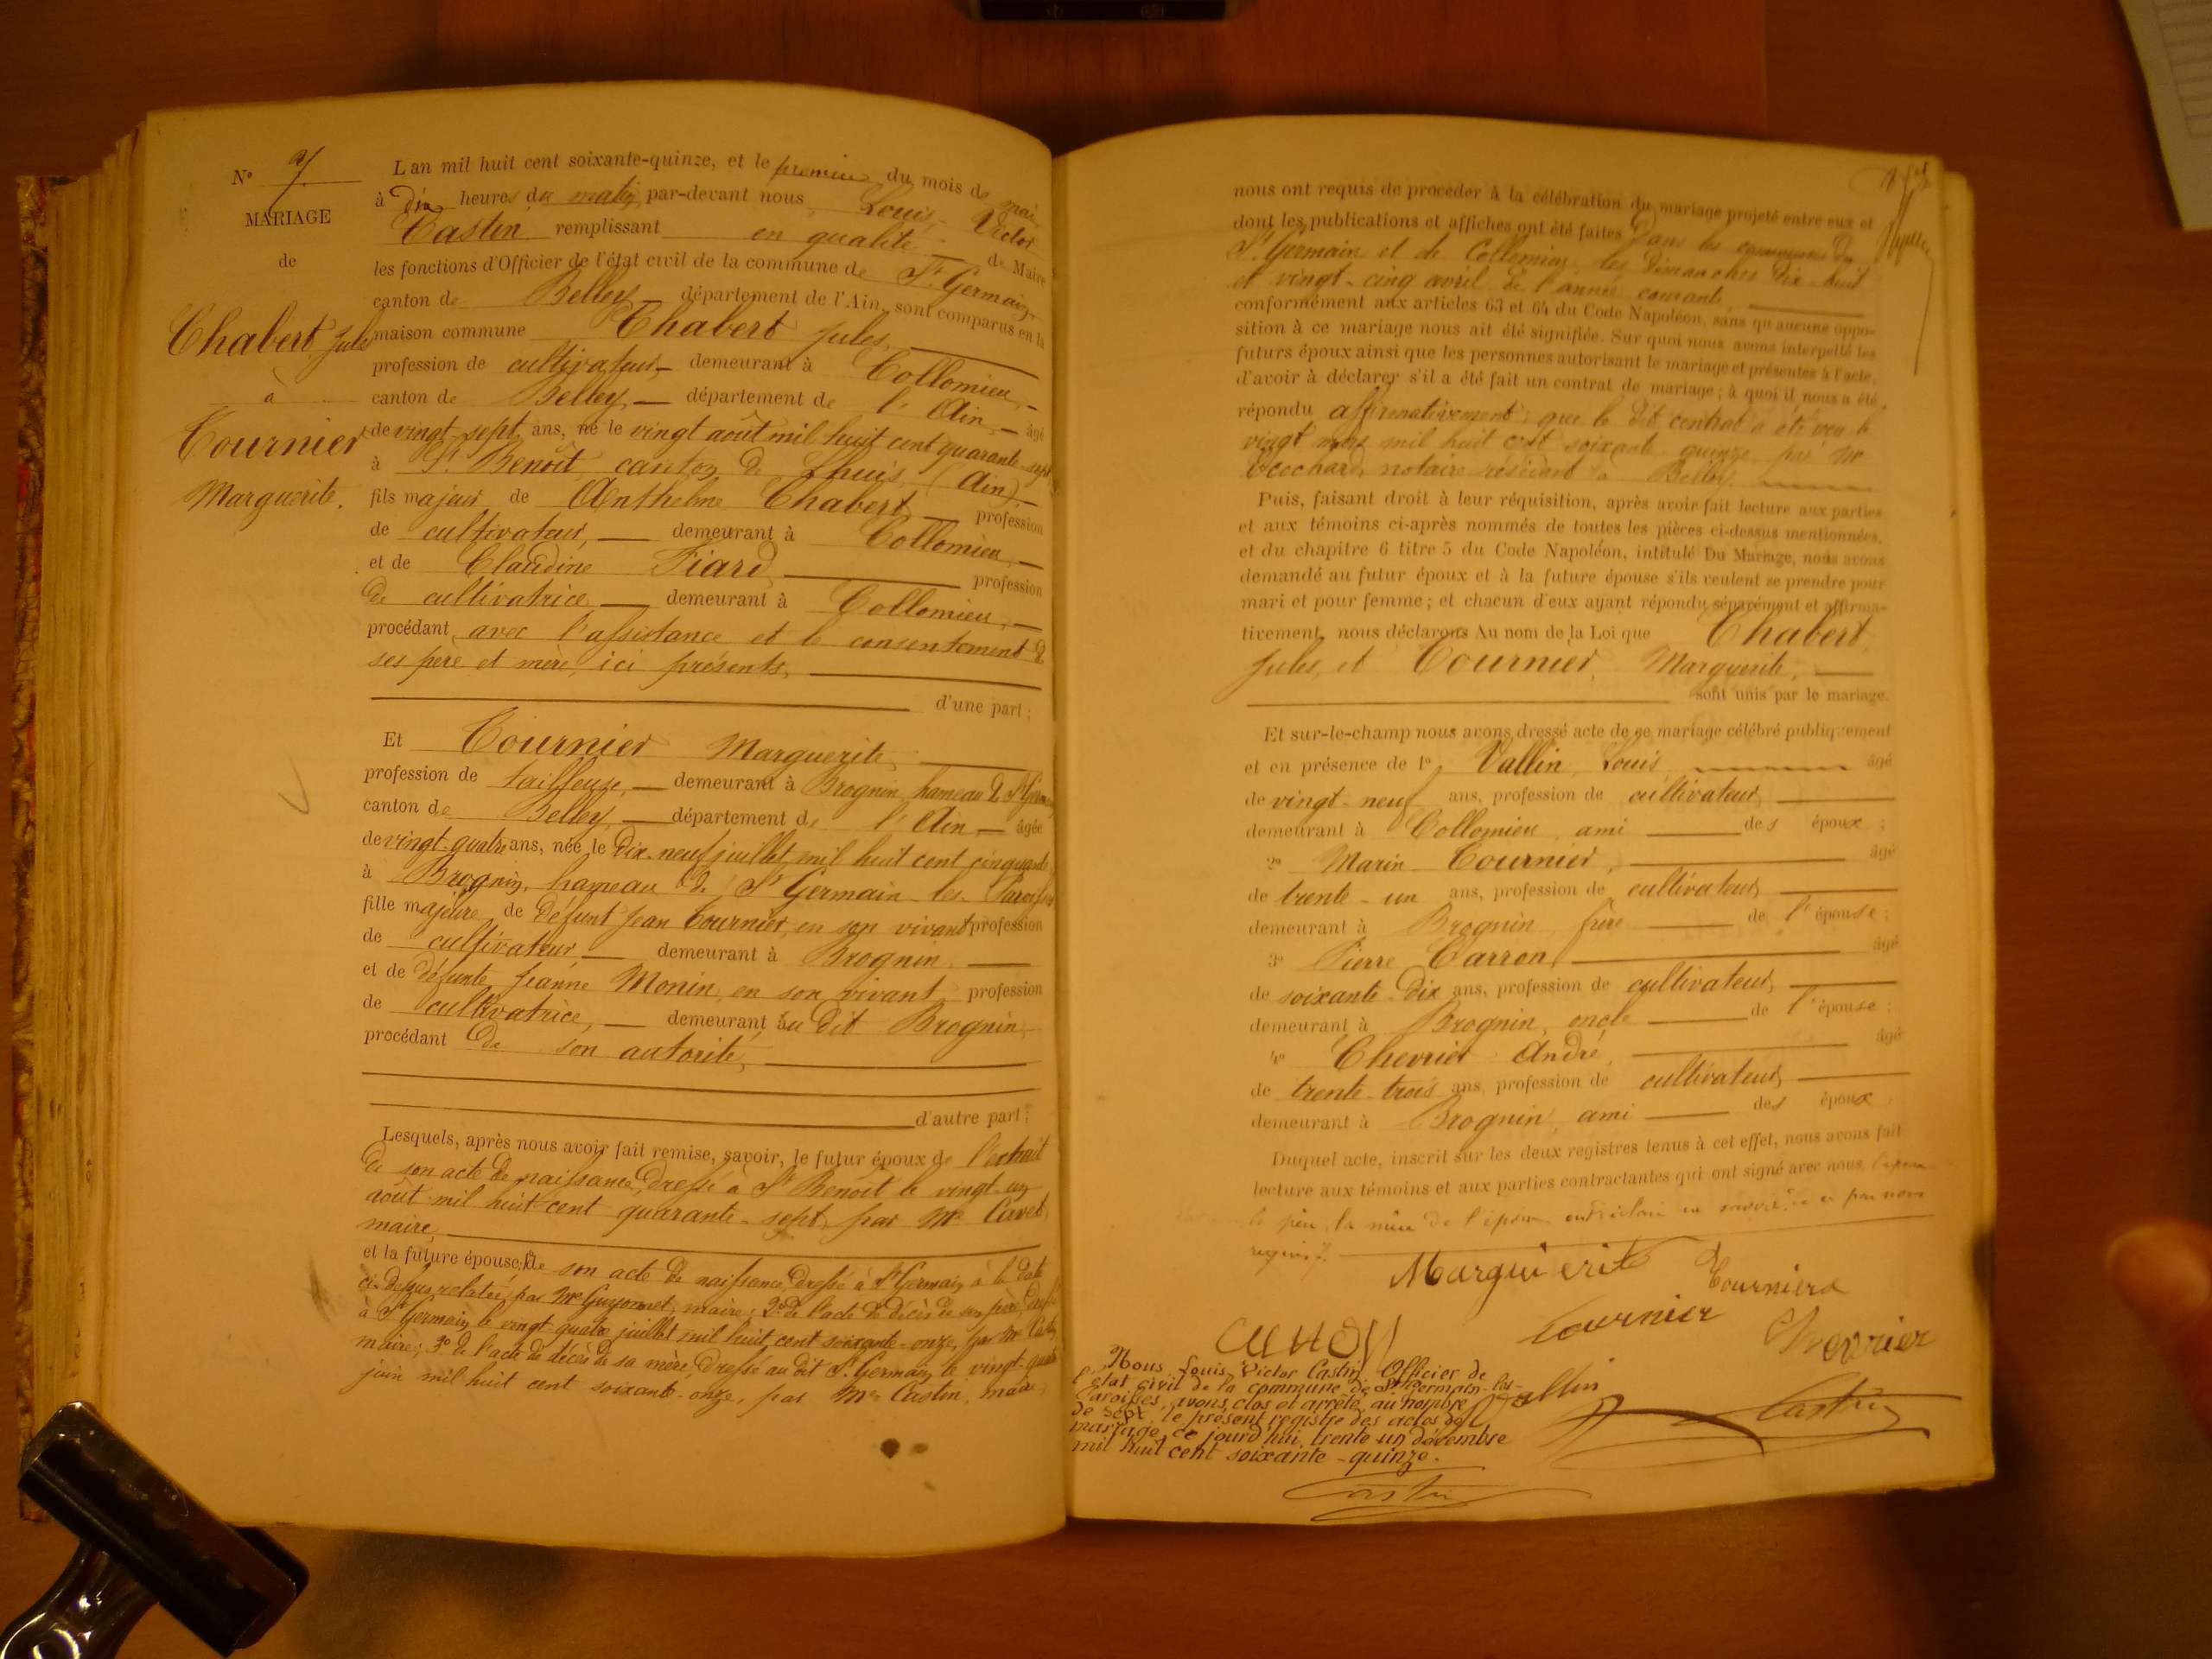 N° 7
MARIAGE
de
Chabert Jules
à
Tournier
Marguerite.
L'an mil huit cent soixante-quinze, et le premier du mois de mai
à dix heures du matin par-devant nous Louis-Victor
Castin remplissant en qualité de Maire
les fonctions d'Officier de l'état civil de la commune de St Germain
canton de Belley département de l'Ain, sont comparus en la
maison commune Chabert Jules,
profession de cultivateur demeurant à Collomieu,
canton de Belley, département de l'Ain âgé
de vingt-sept ans, né le vingt août mil huit cent quarante-sept
à St Benoît, canton de Lhuis, (Ain),
fils majeur de Anthelme Chabert profession
de cultivateur, demeurant à Collomieu,
et de Claudine Fiard profession
de cultivatrice demeurant à Collomieu,
procédant avec l'assistance et le consentement de
ses père et mère, ici présents,
d'une part;
Et Tournier Marguerite,
profession de tailleuse, demeurant à Brognin, hameau de St Germain
canton de Belley, département de l'Ain âgée
de vingt-quatre ans, née le dix-neuf juillet mil huit cent cinquante
à Brognin, hameau de St Germain-les-Paroisses
fille majeure de défunt Jean Tournier, en son vivant profession
de cultivateur demeurant à Brognin
et de défunte Jeanne Monin, en son vivant profession
de cultivatrice, demeurant au dit Brognin
procédant de son autorité,
d'autre part;
Lesquels, après nous avoir fait remise, savoir, le futur époux de l'extrait
de son acte de naissance, dressé à St Benoît le vingt-un
août mil huit cent quarante-sept, par Mr Cavet,
maire,
et la future épouse, de son acte de naissance, dressé à St Germain à la date
ci-dessus relatée, par Mr Guyonnet, maire; 2° de l'acte de décès de son père, dressé
à St Germain le vingt-quatre juillet mil huit cent soixante-onze, par Mr Castin
maire; 3° de l'acte de décès de sa mère, dressé au dit St Germain le vingt-quatre
juin mil huit cent soixante-onze, par Mr Castin, maire,
nous ont requis de procéder à la célébration du mariage projeté entre eux et
dont les publications et affiches ont été faites dans les communes de
St Germain et de Collomieu, les dimanches dix-huit
et vingt-cinq avril de l'année courante,
conformément aux articles 63 et 64 du Code Napoléon, sans qu'aucune oppo-
sition à ce mariage nous ait été signifiée. Sur quoi nous avons interpellé les
futurs époux ainsi que les personnes autorisant le mariage et présentes à l'acte,
d'avoir à déclarer s'il a été fait un contrat de mariage; à quoi il nous a été
répondu affirmativement; que le dit contrat a été reçu le
vingt mars mil huit cent soixante-quinze par Mr
notaire résidant à Belley
Puis, faisant droit à leur réquisition, après avoir fait lecture aux parties
et aux témoins ci-après nommés de toutes les pièces ci-dessus mentionnées,
et du chapitre 6 titre 5 du Code Napoléon, intitulé Du Mariage, nous avons
demandé au futur époux et à la future épouse s'ils veulent se prendre pour
mari et pour femme; et chacun d'eux ayant répondu séparément et affirma-
tivement, nous déclarons Au nom de la Loi que Chabert
Jules, et Tournier, Marguerite,
sont unis par le mariage.
Et sur-le-champ nous avons dressé acte de ce mariage célébré publiquement
et en présence de 1° Vallin, Louis âgé
de vingt-neuf ans, profession de cultivateur
demeurant à Collomieu, ami des époux;
2° Marin Tournier, âgé
de trente-un ans, profession de cultivateur
demeurant à Brognin, frère de l'épouse;
3° Pierre Carron, âgé
de soixante-dix ans, profession de cultivateur
demeurant à Brognin, oncle de l'épouse;
4° Chevrier André, âgé
de trente-trois ans, profession de cultivateur
demeurant à Brognin, ami des époux.
Duquel acte, inscrit sur les deux registres tenus à cet effet, nous avons fait
lecture aux témoins et aux parties contractantes qui ont signé avec nous,
le père, la mère de l'époux ont déclaré ne savoir, de ce par nous
requis.
Marguierite Tourniere
Tournier
Chevrier
Vallin
Castin
Nous Louis Victor Castin Officier de
l'état civil de la commune de St Germain-les-
Paroisses, avons clos et arrêté au nombre
de sept, le présent registre des actes de
mariage, ce jourd'hui trente un décembre
mil huit cent soixante-quinze.
Castin